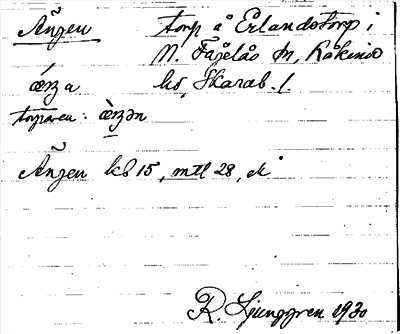 Ängen torp å Erlandstorp i
N. Fågelås sn, Kåkinds
hd, Skarab. l.
torparen:
Ängen kb 15, mtl 28, ek
R. Ljunggren 1930